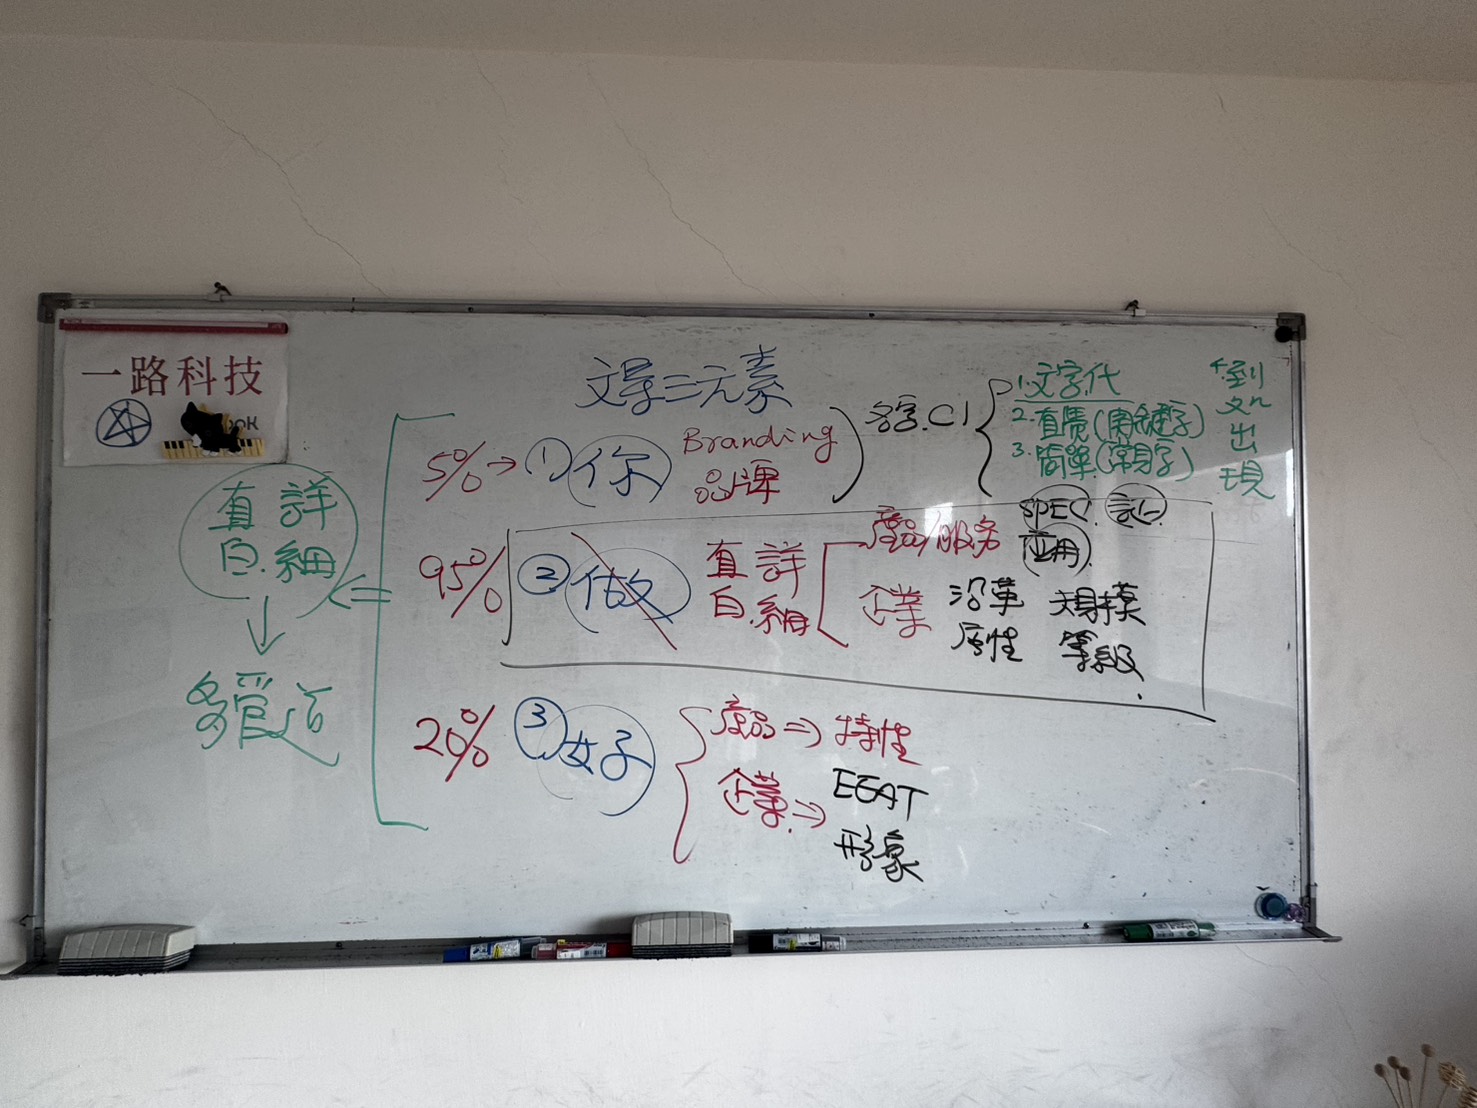 一路科技
三元素
5%→①你 Branding
品牌
名字.CI
1.文字代
2.直覺(關鍵字)
3.簡單(常見字)
到
出
現
直 詳
白.細
↓
多管道
95% ②做 直 詳
白.細
產品/服務 SPEC.
应用
企業 沿革 規模
屬性 等級
20% ③好
產品⇒特性
企業.⇒EEAT
形象